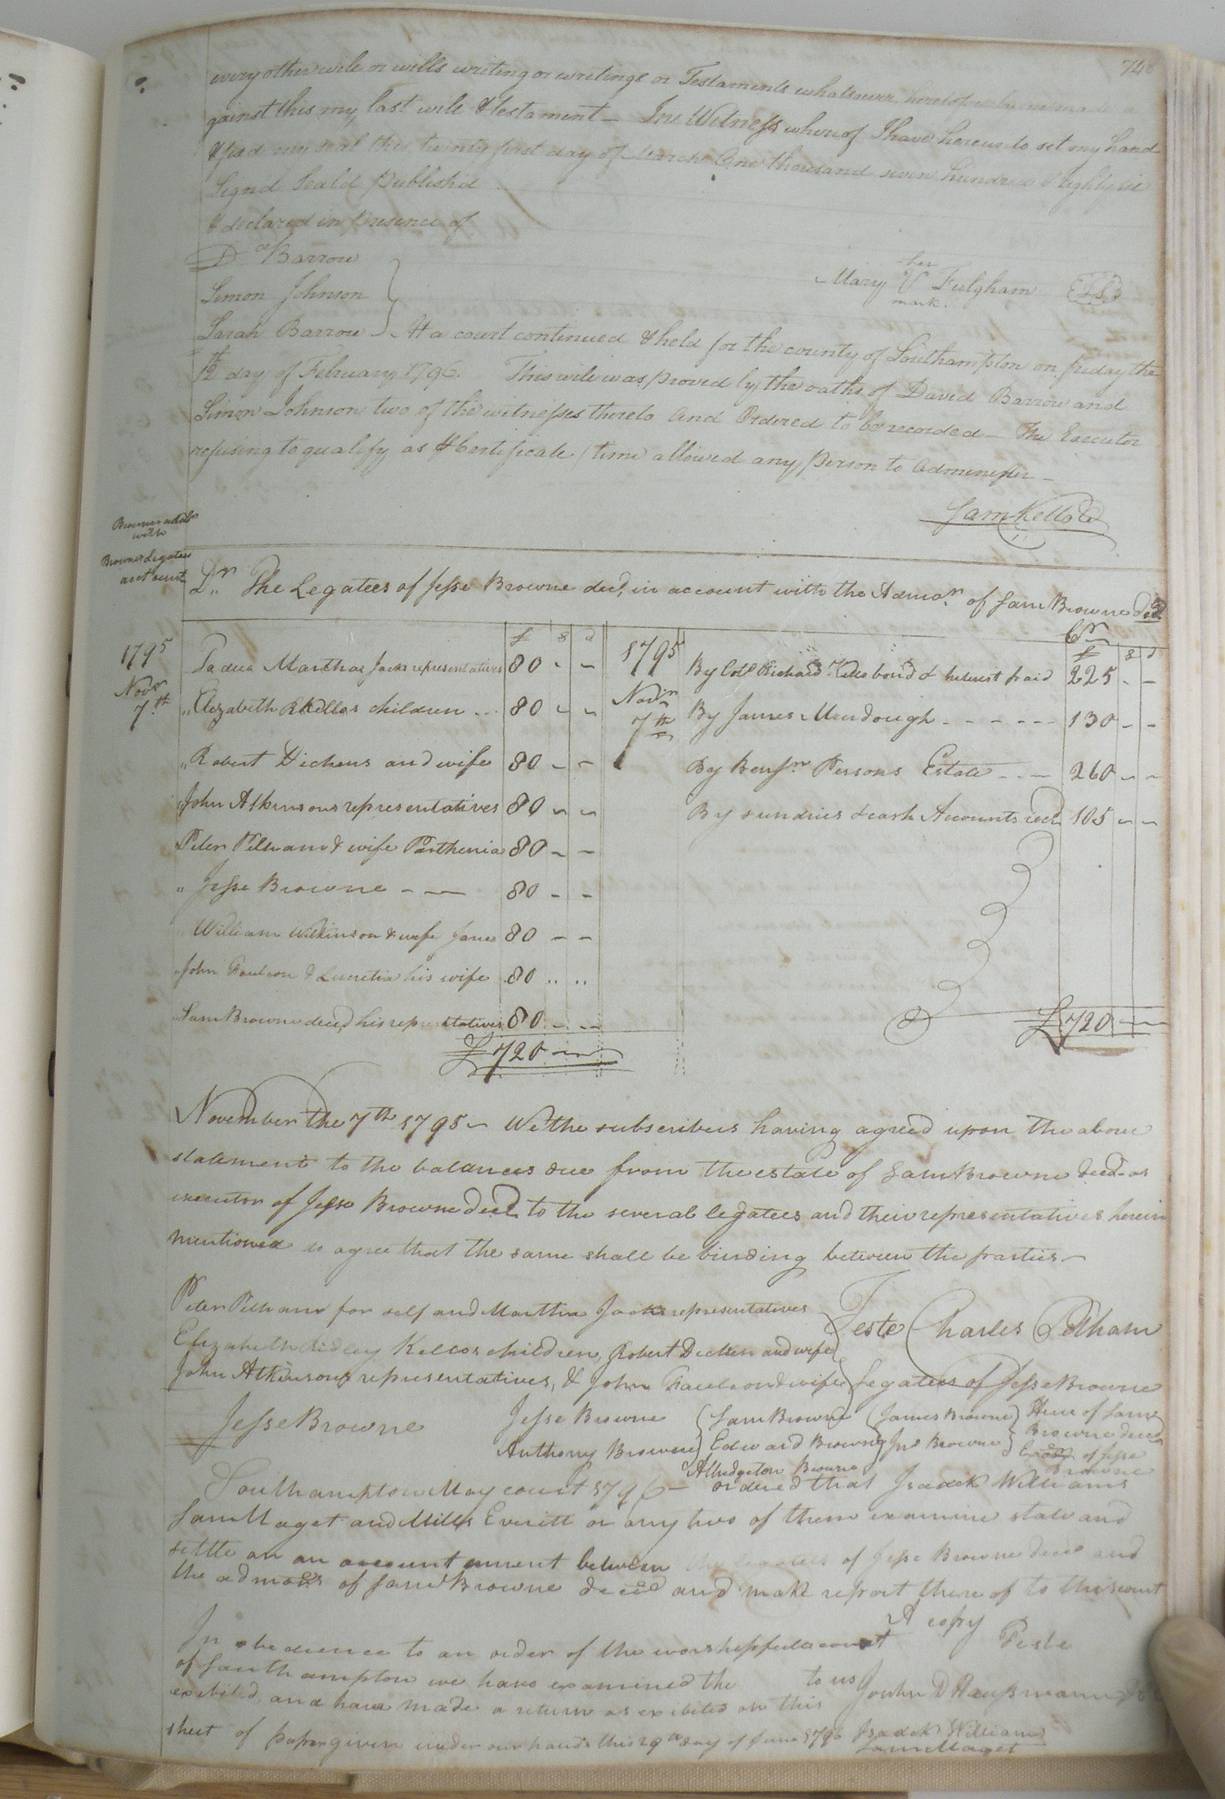 746
every other will or wills writing or writings or Testaments whatsoever heretofore by me made a
gainst this my last will & testament – In Witness whereof I have hereunto set my hand
& fixd my seal this twenty first day of March One thousand seven hundred & Eighty six
Signd Seald Publishd
& declared in Presence of
Dd. Barrow
Simon Johnson
Sarah Barrow
Mary her V mark Fulgham (LS)
At a court continued & held for the county of Southampton on friday the
12 day of February 1796. This will was proved by the oaths of David Barrow and
Simon Johnson two of the witnesses thereto And Ordered to be recorded – The Executor
refusing to qualify as & Certificate time allowed any Person to Adminester –
Sam Kello
Browns admr
with
Browns Legatees
acct currt
Dr. The Legatees of Jesse Browne decd, in account with the Admor. of Sam Browne decd
£ s d
Cr
£ s d
1795 Novr 7th
To Martha Jacks representatives 80 - -
" Elizabeth R Kellos children 80 - -
" Robert Dickens and wife 80 - -
John Atkinsons representatives 80 - -
Peter Pelham & wife Parthenia 80 - -
" Jesse Browne 80 - -
William Wilkinson & wife Jane 80 - -
John Faulcon & Lucretia his wife 80 " "
Sam Browne decd his representatives 80 - -
£720 -
1795 Novr 7th
By Coll Richard Kellos bond & Interest paid 225 - -
By James Murdough 130 - -
By Benjn Persons Estate 260 - -
By sundries & cash Accounts recd 105 - -
£720 -
November the 7th 1795 – We the subscribers having agreed upon the above
statement to the balances due from the estate of Sam Browne decd as
executor of Jesse Browne decd to the several legatees and their representatives herein
mentioned do agree that the same shall be binding between the parties –
Peter Pelham for self and Martha Jacks representatives
Elizabeth Ridley Kellos children, Robert Dicken and wife
John Atkinsons representatives, & John Faulcon & wife
Teste Charles Pelham
Legatees of Jesse Browne
Jesse Browne
Jesse Browne
Anthony Browne
Sam Browne
Edward Browne
Albridgeton Browne
James Browne
Jno Browne
Heirs of Sam
Browne decd
Exor of Jesse
Browne
Southampton May court 1796 – ordered that Isadck Williams
Sam Maget and Mills Everitt or any two of them examine state and
settle an an account current between the legatees of Jesse Browne decd and
the admors of Sam Browne decd and make report thereof to this court
A copy
Teste
In obedience to an order of the worshipfull court
of Southampton we have examined the to us
exibited, and have made a return as exibited on this
sheet of paper given under our hands this 29th day of June 1796
Isadck Williams
Sam Maget